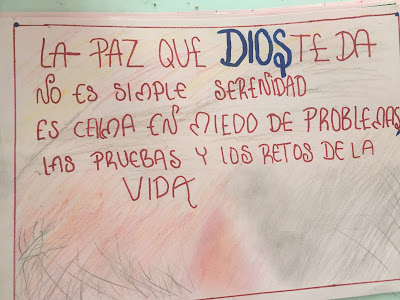 LA PAZ QUE DIOS TE DA
NO ES SIMPLE SERENIDAD
ES CELMA EN MIEDO DE PROBLEMAS
LAS PRUEBAS Y LOS RETOS DE LA
VIDA